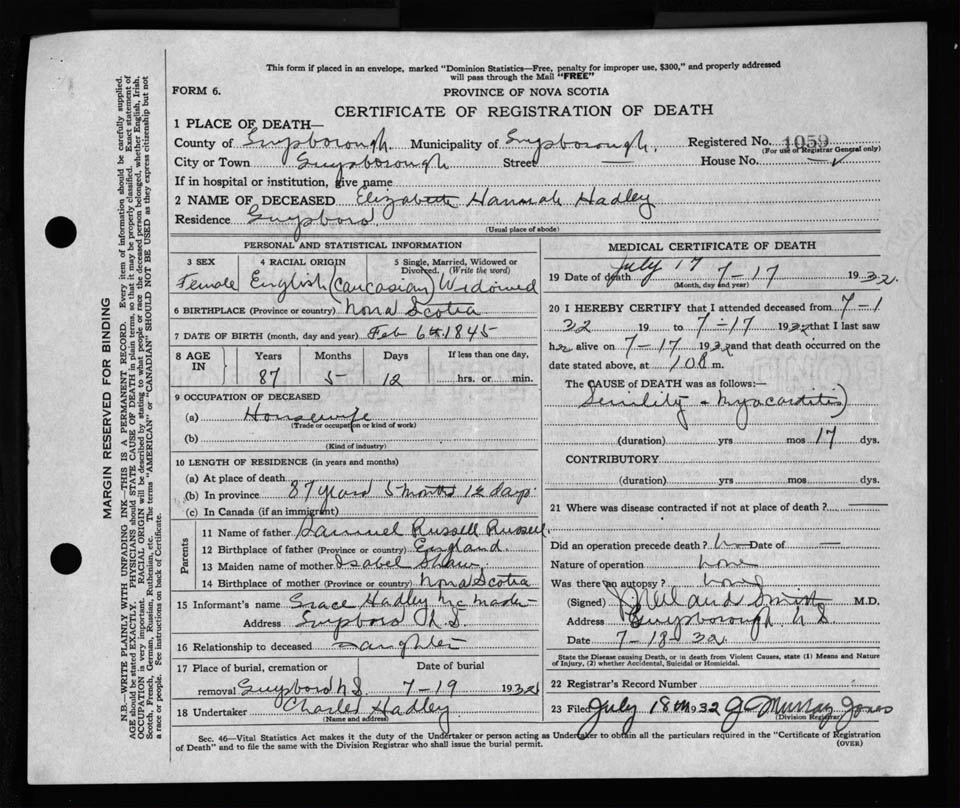 This form if placed in an envelope, marked "Dominion Statistics—Free, penalty for improper use, $300," and properly addressed
will pass through the Mail "FREE"
FORM 6.
PROVINCE OF NOVA SCOTIA
CERTIFICATE OF REGISTRATION OF DEATH
1 PLACE OF DEATH—
County of Guysborough. Municipality of Guysborough. Registered No. 1059
(For use of Registrar General only)
City or Town Guysborough Street — House No. —
If in hospital or institution, give name
2 NAME OF DECEASED Elizabeth Hannah Hadley
Residence Guysboro
(Usual place of abode)
PERSONAL AND STATISTICAL INFORMATION
3 SEX Female
4 RACIAL ORIGIN English (Caucasian)
5 Single, Married, Widowed or Divorced. (Write the word) Widowed
6 BIRTHPLACE (Province or country) Nova Scotia
7 DATE OF BIRTH (month, day and year) Feb 6th 1845
8 AGE IN Years Months Days If less than one day,
87 5 12 hrs. or min.
9 OCCUPATION OF DECEASED
(a) Housewife
(Trade or occupation or kind of work)
(b)
(Kind of industry)
10 LENGTH OF RESIDENCE (in years and months)
(a) At place of death
(b) In province 87 years 5 months 12 days
(c) In Canada (if an immigrant)
Parents
11 Name of father Samuel Russell Russell.
12 Birthplace of father (Province or country) England.
13 Maiden name of mother Isabel Shaw
14 Birthplace of mother (Province or country) Nova Scotia
15 Informant's name Grace Hadley McMaster
Address Guysboro N.S.
16 Relationship to deceased Daughter
17 Place of burial, cremation or Date of burial
removal Guysboro N.S. 7-19 1932
18 Undertaker Charles Hadley
(Name and address)
MEDICAL CERTIFICATE OF DEATH
July 17
19 Date of death 7-17 1932.
(Month, day and year)
20 I HEREBY CERTIFY that I attended deceased from 7-1
32 19 to 7-17 1932 that I last saw
her alive on 7-17 1932 and that death occurred on the
date stated above, at m.
The CAUSE OF DEATH was as follows:—
Senility & Myocarditis
(duration) yrs mos 17 dys.
CONTRIBUTORY
(duration) yrs. mos. dys.
21 Where was disease contracted if not at place of death? —
Did an operation precede death? no Date of —
Nature of operation none
Was there an autopsy? none
(Signed) Smith M.D.
Address Guysborough N S
Date 7-18 32
State the Disease causing Death, or in death from Violent Causes, state (1) Means and Nature
of Injury, (2) whether Accidental, Suicidal or Homicidal.
22 Registrar's Record Number
23 Filed July 18th 1932 J Murray Jones
(Division Registrar)
Sec. 46—Vital Statistics Act makes it the duty of the Undertaker or person acting as Undertaker to obtain all the particulars required in the "Certificate of Registration
of Death" and to file the same with the Division Registrar who shall issue the burial permit.
(OVER)
MARGIN RESERVED FOR BINDING
N.B.—WRITE PLAINLY WITH UNFADING INK—THIS IS A PERMANENT RECORD. Every item of information should be carefully supplied.
AGE should be stated EXACTLY. PHYSICIANS should STATE CAUSE OF DEATH in plain terms, so that it may be properly classified. Exact statement of
OCCUPATION is very important. RACIAL ORIGIN will be described by stating to what people or race the deceased person belonged, whether English, Irish,
Scotch, French, German, Russian, Ruthenian, etc. The terms "AMERICAN" or "CANADIAN" SHOULD NOT BE USED as they express citizenship but not
a race or people. See instructions on back of Certificate.